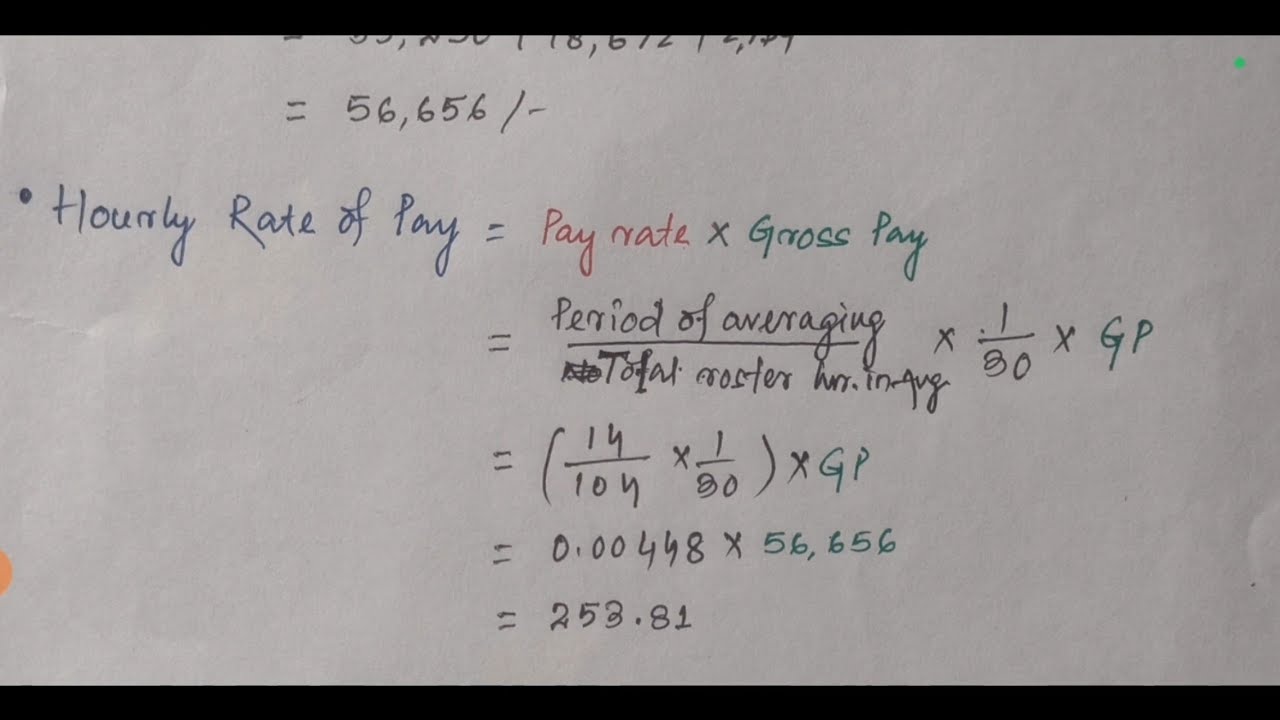 = 56,656/-
• Hourly Rate of Pay = Pay rate × Gross Pay
= Period of averaging / Total roster hr. in Avg × 1/30 × GP
= (14/104 × 1/30) × GP
= 0.00448 × 56,656
= 253.81